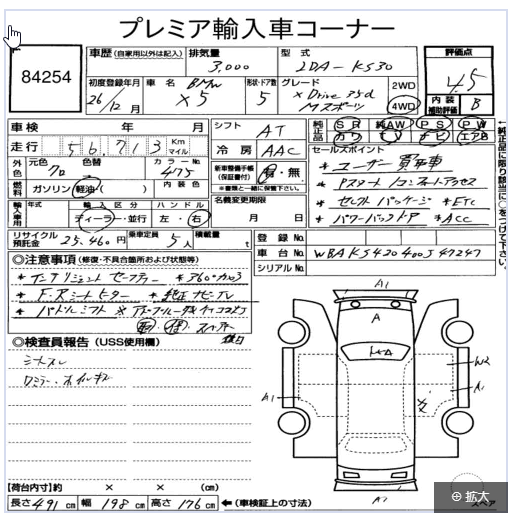 プレミア輸入車コーナー
84254
車歴 (自家用以外は記入)
排気量
型式
評価点
3,000
LDA-KS30
4.5
初度登録年月
車名
形状・ドア数
グレード
26/12月
BMW X5
5
xDrive 35d Mスポーツ
2WD
4WD
内装補助評価
B
車検 年 月
シフト
AT
純正品
SR 純AW PS PW
カワ ナビ エアB
走行
56713
Km
マイル
冷房
AAC
セールスポイント
外色
元色
色替
カラーNo
クロ
475
新車整備手帳(保証書付)
有・無
※書類と一緒に保管下さい。
* ユーザー買取車
* Pスタート/コンフォートアクセス
燃料
ガソリン 軽油 ( )
内装色
* セレクトパッケージ * ETC
輸入車用
年式
輸入区分
ハンドル
名義変更期限
月 日
ディーラー・並行
左・右
* パワーバックドア * ACC
リサイクル預託金
25,460円
乗車定員
5人
積載量
t
登録No.
車台No.
WBAKS420400J47247
シリアルNo.
◎注意事項 (修復・不具合箇所および状態等)
* インテリジェントセーフティー
* F.Rシートヒーター * 純正ナビTV
* パドルシフト
◎検査員報告 (USS使用欄)
シートスレ
A1
A
W2
A1
A1
A2
【荷台内寸】約 × × (cm)
長さ491cm 幅198cm 高さ176cm ←(車検証上の寸法)
スペア
←純正品に限り該当に○をつけて下さい。
拡大